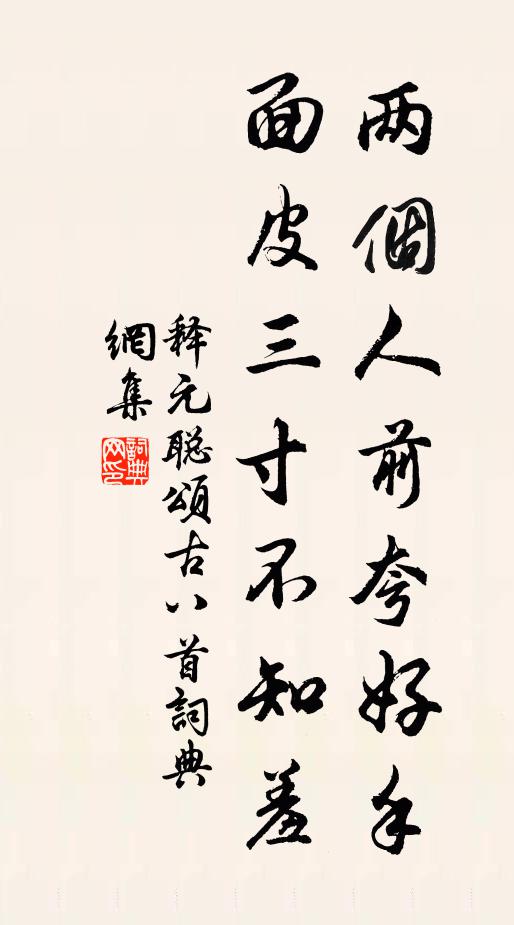 两個人前夸好手
面皮三寸不知羞
释元聪頌古八首詞典
網集
詞典网印